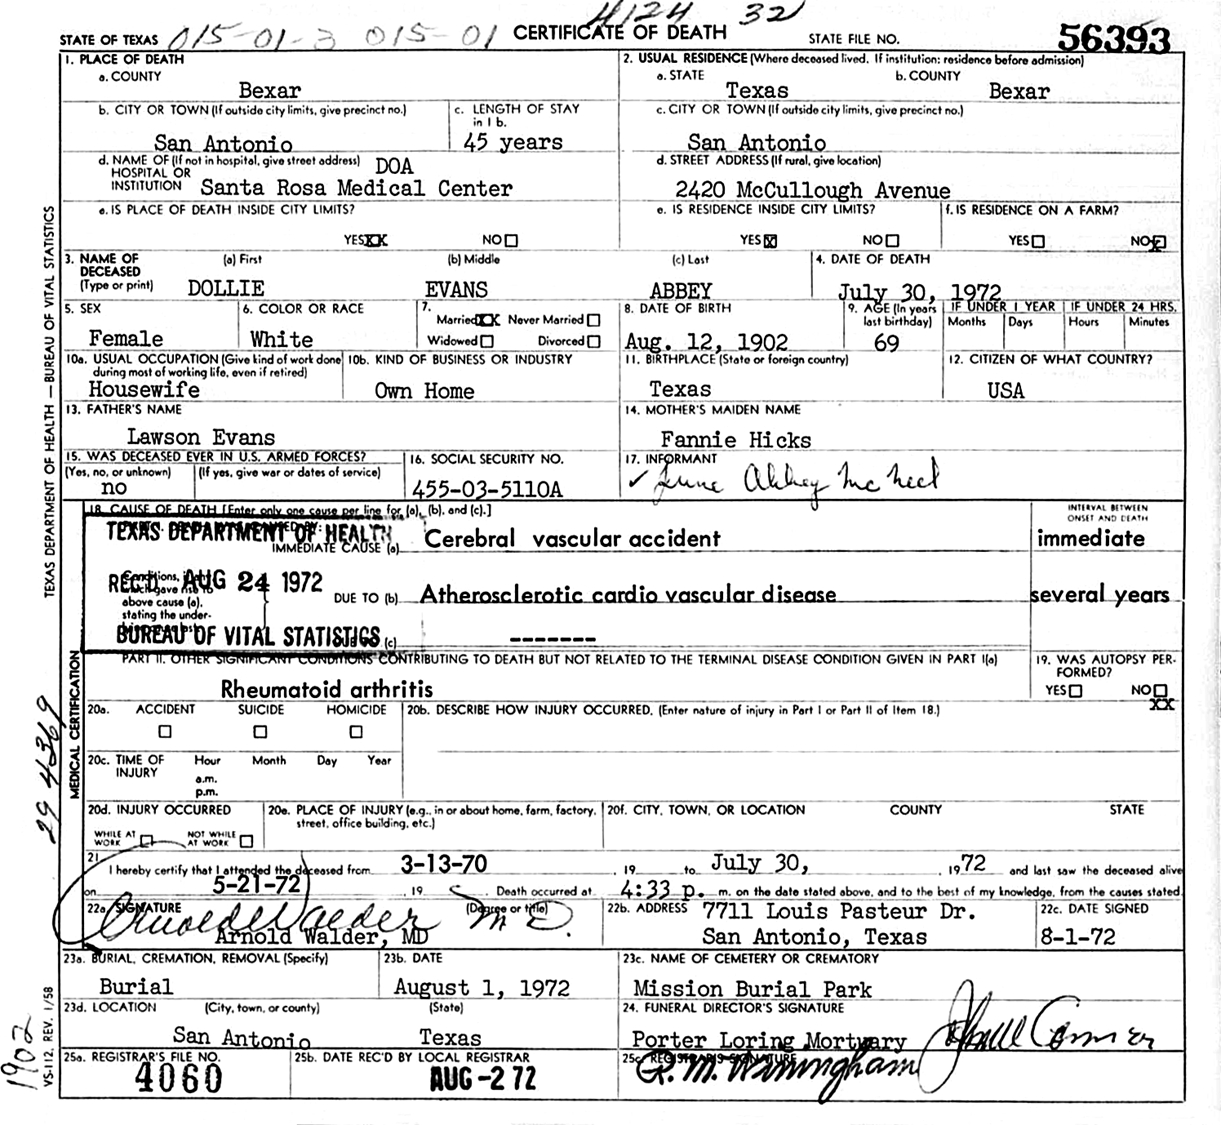 4124 32
STATE OF TEXAS 015-01-3 015-01 CERTIFICATE OF DEATH STATE FILE NO. 56393
1. PLACE OF DEATH
a. COUNTY
Bexar
2. USUAL RESIDENCE (Where deceased lived. If institution: residence before admission)
a. STATE b. COUNTY
Texas Bexar
b. CITY OR TOWN (If outside city limits, give precinct no.)
San Antonio
c. LENGTH OF STAY
in 1 b.
45 years
c. CITY OR TOWN (If outside city limits, give precinct no.)
San Antonio
d. NAME OF (If not in hospital, give street address) DOA
HOSPITAL OR
INSTITUTION Santa Rosa Medical Center
d. STREET ADDRESS (If rural, give location)
2420 McCullough Avenue
e. IS PLACE OF DEATH INSIDE CITY LIMITS?
YES XX NO
e. IS RESIDENCE INSIDE CITY LIMITS?
YES X NO
f. IS RESIDENCE ON A FARM?
YES NO X
3. NAME OF
DECEASED
(Type or print)
(a) First (b) Middle (c) Last
DOLLIE EVANS ABBEY
4. DATE OF DEATH
July 30, 1972
5. SEX
Female
6. COLOR OR RACE
White
7.
Married XX Never Married
Widowed Divorced
8. DATE OF BIRTH
Aug. 12, 1902
9. AGE (In years
last birthday)
69
IF UNDER 1 YEAR
Months Days
IF UNDER 24 HRS.
Hours Minutes
10a. USUAL OCCUPATION (Give kind of work done
during most of working life, even if retired)
Housewife
10b. KIND OF BUSINESS OR INDUSTRY
Own Home
11. BIRTHPLACE (State or foreign country)
Texas
12. CITIZEN OF WHAT COUNTRY?
USA
13. FATHER'S NAME
Lawson Evans
14. MOTHER'S MAIDEN NAME
Fannie Hicks
15. WAS DECEASED EVER IN U.S. ARMED FORCES?
(Yes, no, or unknown) (If yes, give war or dates of service)
no
16. SOCIAL SECURITY NO.
455-03-5110A
17. INFORMANT
✓ June Abbey McNeel
18. CAUSE OF DEATH [Enter only one cause per line for (a), (b), and (c).]
INTERVAL BETWEEN
ONSET AND DEATH
TEXAS DEPARTMENT OF HEALTH
IMMEDIATE CAUSE (a) Cerebral vascular accident immediate
REC'D AUG 24 1972
Conditions, if any,
which gave rise to
above cause (a),
stating the under-
DUE TO (b) Atherosclerotic cardio vascular disease several years
BUREAU OF VITAL STATISTICS
(c) -------
PART II. OTHER SIGNIFICANT CONDITIONS CONTRIBUTING TO DEATH BUT NOT RELATED TO THE TERMINAL DISEASE CONDITION GIVEN IN PART I(a)
Rheumatoid arthritis
19. WAS AUTOPSY PER-
FORMED?
YES NO
XX
20a. ACCIDENT SUICIDE HOMICIDE
20b. DESCRIBE HOW INJURY OCCURRED. (Enter nature of injury in Part I or Part II of Item 18.)
20c. TIME OF
INJURY
Hour Month Day Year
a.m.
p.m.
20d. INJURY OCCURRED
WHILE AT
WORK
NOT WHILE
AT WORK
20e. PLACE OF INJURY (e.g., in or about home, farm, factory,
street, office building, etc.)
20f. CITY, TOWN, OR LOCATION COUNTY STATE
21
I hereby certify that I attended the deceased from 3-13-70, 19 to July 30, 1972 and last saw the deceased alive
on 5-21-72, 19 . Death occurred at 4:33 p. m. on the date stated above, and to the best of my knowledge, from the causes stated.
22a. SIGNATURE (Degree or title)
Arnold Walder MD.
Arnold Walder, MD
22b. ADDRESS 7711 Louis Pasteur Dr.
San Antonio, Texas
22c. DATE SIGNED
8-1-72
23a. BURIAL, CREMATION, REMOVAL (Specify)
Burial
23b. DATE
August 1, 1972
23c. NAME OF CEMETERY OR CREMATORY
Mission Burial Park
23d. LOCATION (City, town, or county) (State)
San Antonio Texas
24. FUNERAL DIRECTOR'S SIGNATURE
Porter Loring Mortuary
25a. REGISTRAR'S FILE NO.
4060
25b. DATE REC'D BY LOCAL REGISTRAR
AUG-2 72
25c. REGISTRAR'S SIGNATURE
TEXAS DEPARTMENT OF HEALTH — BUREAU OF VITAL STATISTICS
MEDICAL CERTIFICATION
29 4369
VS-112, REV. 1/58
1902